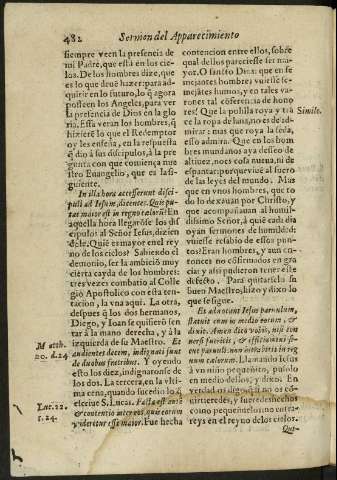 482 Sermon del Apparecimiento
siempre veen la presencia de
mi Padre, que està en los cie-
los. De los hombres dize, que
es lo que deuē hazer: para ad-
quirir en lo futuro, lo q̄ agora
posseen los Angeles, para ver
la presencia de Dios en la glo
ria. Essa veran los hombres, q̄
hizierē lo que el Redemptor
oy les enseña, en la respuesta
q̄ dio à sus discipulos, à la pre
gunta con que comiença nue
stro Euangelio, que es la si-
guiente.
In illa hora accesserunt disci-
puli ad Iesum, dicentes: Quis pu-
tat maior est in regno cælorū? En
aquella hora llegarōse los di-
scipulos al Señor Iesus, dizien
dole: Quiē es mayor en el rey
no de los cielos? Sabiendo el
demonio, ser la ambiciō muy
cierta cayda de los hombres:
tres vezes combatio al Colle
gio Apostolico con esta ten-
tacion, la vna aqui. La otra,
despues q̄ los dos hermanos,
Diego, y Ioan se quisierō sen-
tar à la mano derecha, y à la
izquierda de su Maestro. Et
Matth.
20. d. 24
audientes decem, indignati sunt
de duobus fratribus. Y oyendo
esto los diez, indignaronse de
los dos. La tercera, en la vlti-
ma cena, quando sucedio lo q̄
escriue S. Lucas. Facta est autē
Luc. 22.
c. 24.
& contentio inter eos, quis eorum
videretur esse maior. Fue hecha
contencion entre ellos, sobre
qual dellos pareciesse ser ma-
yor. O sancto Dios: que en se
mejantes hombres vuiesse se-
mejātes humos, y en tales varo-
nes tal cōferencia de hono-
res? Que la polilla roya y tra
Simile.
ce la ropa de lana, no es de ad-
mirar: mas que roya la seda,
esso admira. Que en los hom
bres mundanos aya desseo de
altiuez, no es cosa nueua, ni de
espantar: porque viuē al fuero
de las leyes del mundo. Mas
que en vnos hombres, que to
do lo dexauan por Christo, y
que acompañauan al humil-
dissimo Señor, à quiē cada dia
oyan sermones de humildad:
vuiesse resabio de essos pun-
tos? Eran hombres, y aun en-
tonces no cōfirmados en gra
cia: y assi pudieron tener este
defecto. Para quitarselo su
buen Maestro, hizo y dixo lo
que se sigue.
Et aduocans Iesus paruulum,
statuit eum in medio eorum, &
dixit. Amen dico vobis, nisi con
uersi fueritis, & efficiamini si-
cut paruuli, non intrabitis in reg
num cælorum. Llamando Iesus
à vn niño pequeñito, pusolo
en medio dellos, y dixo. En
verdad os digo, q̄ si no os cō-
uirtieredes, y fueredes hechos
como pequeñitos: no entra-
reys en el reyno de los cielos.
Que-